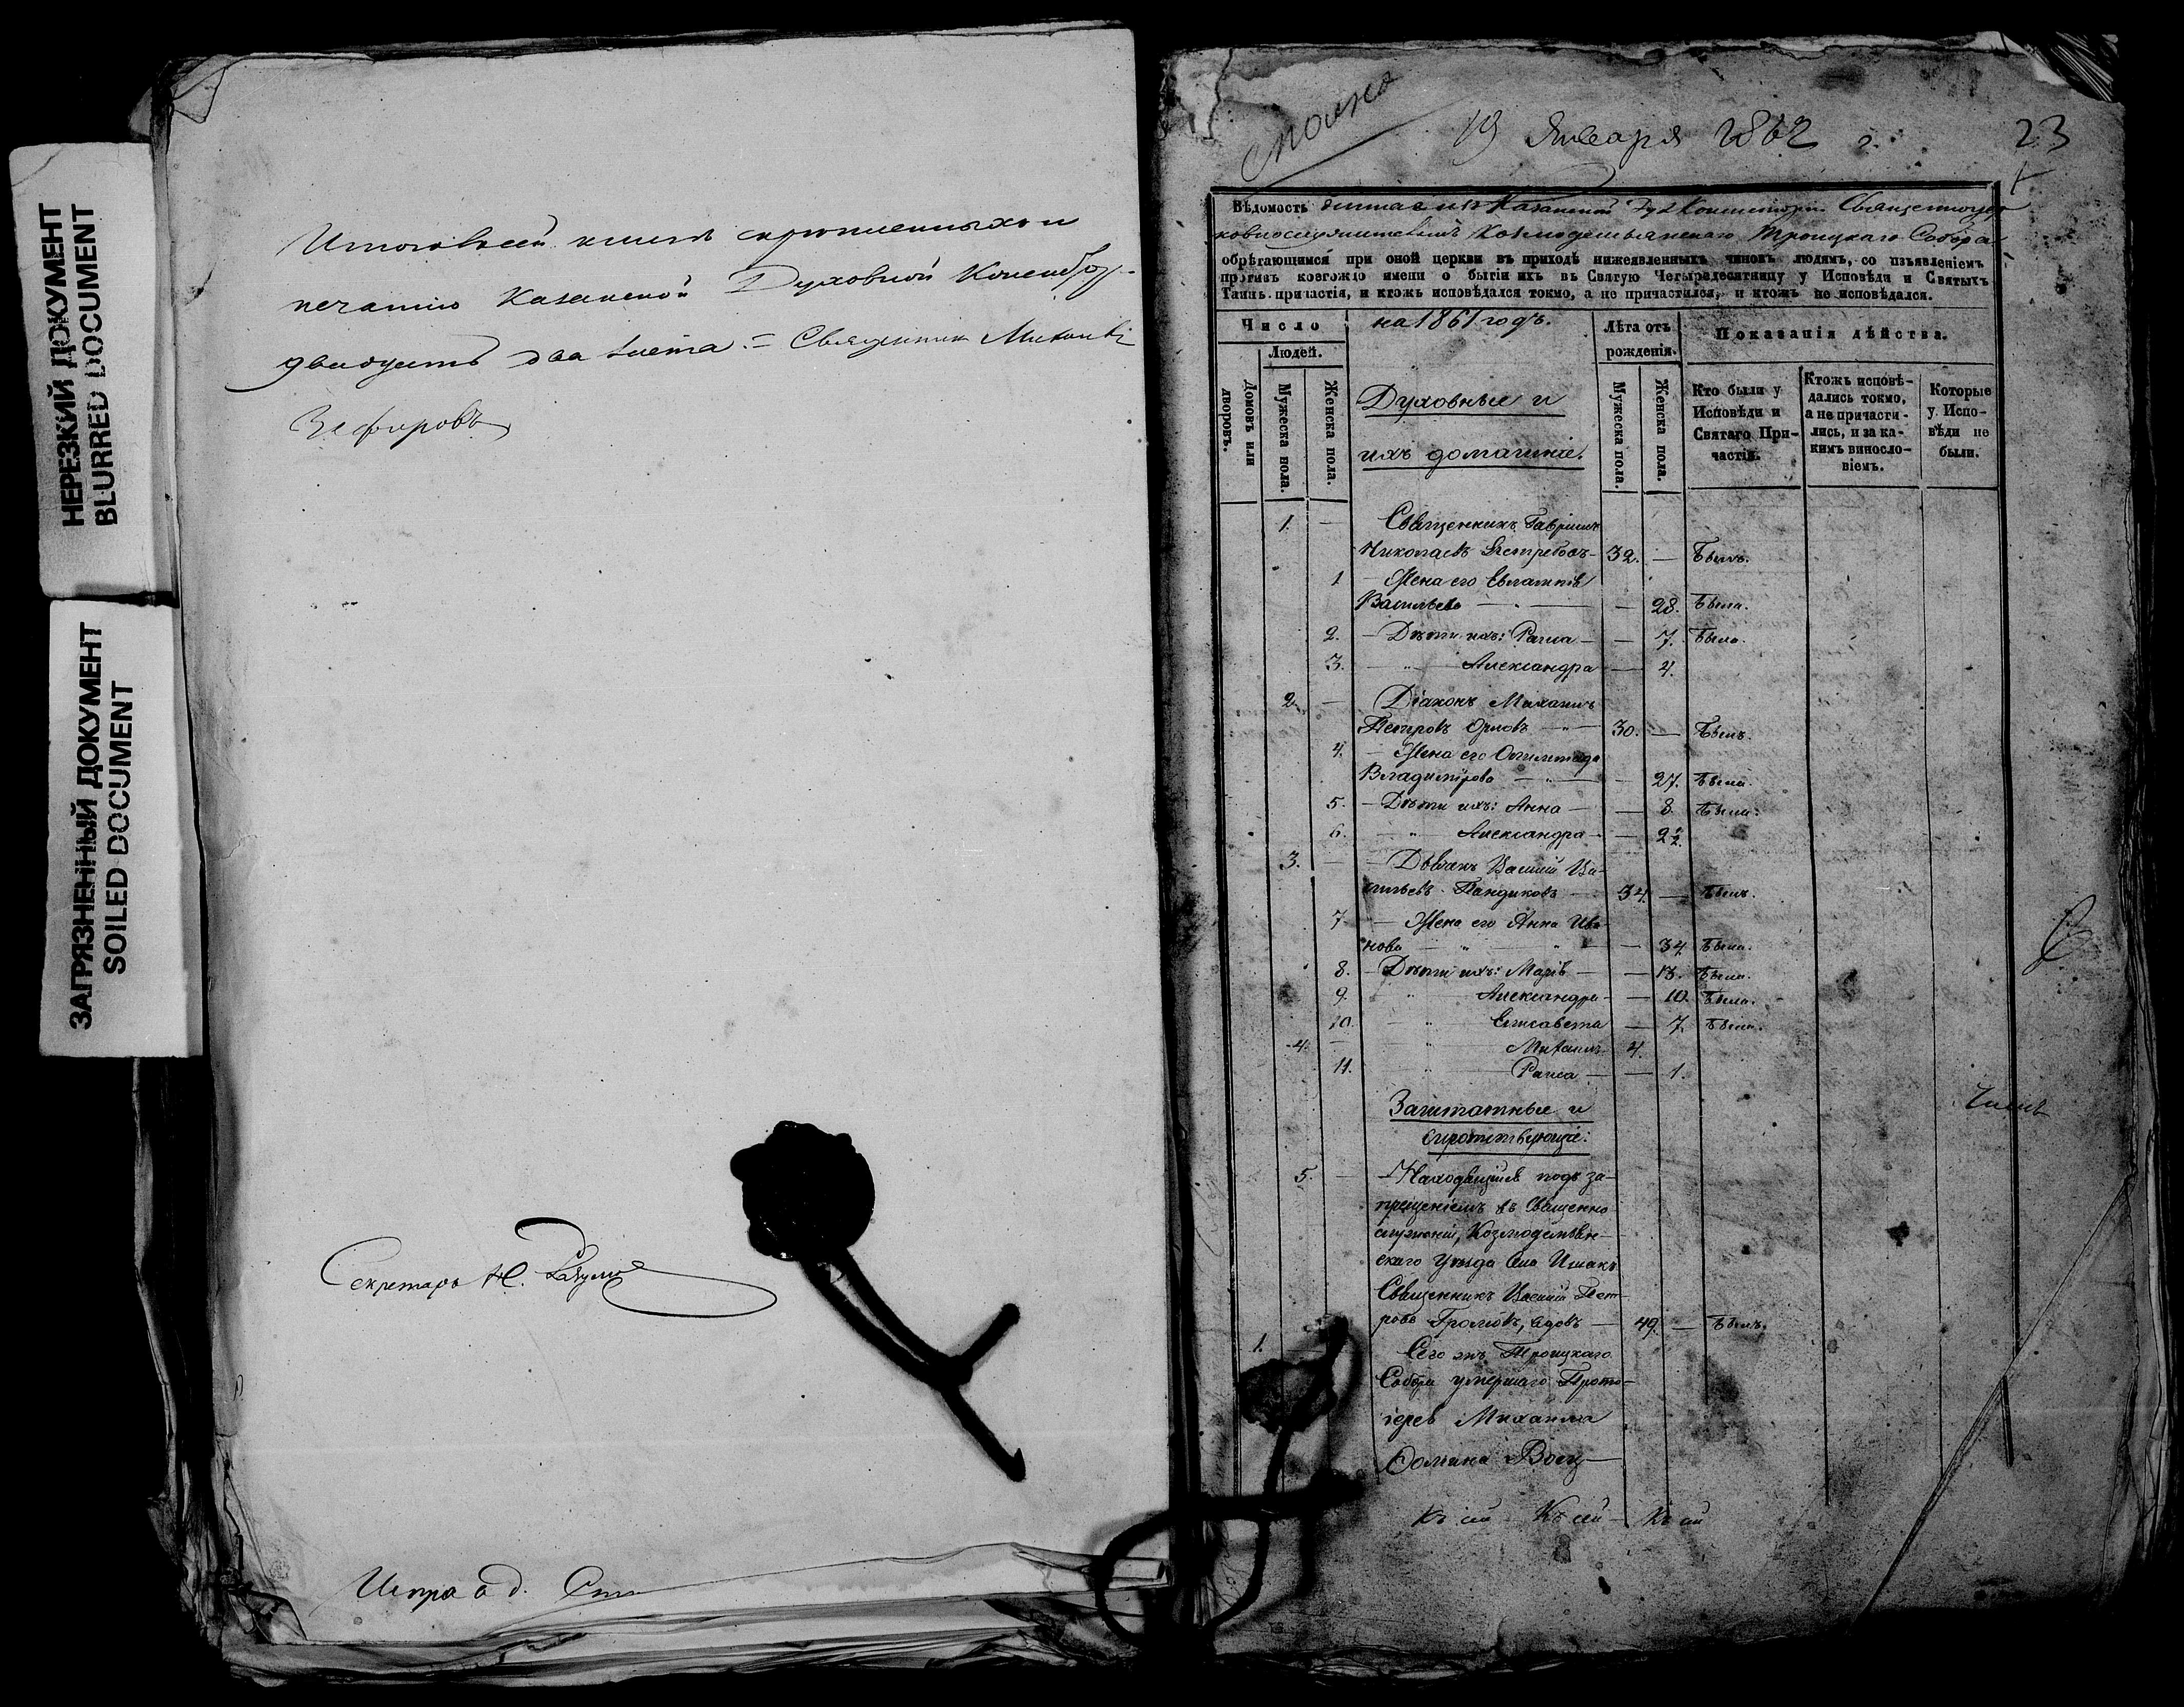 НЕРЕЗКИЙ ДОКУМЕНТ
BLURRED DOCUMENT
ЗАГРЯЗНЕННЫЙ ДОКУМЕНТ
SOILED DOCUMENT
печатию Казанской Духовной
двадцать два листа = Священник Михаилъ
Зефировъ
Секретарь
19 Января 1862 г.
23
Вѣдомость Казанской Дух. Консисторіи
Козмодемьянскаго Троицкаго Собора
обрѣтающимся при оной церкви въ приходѣ нижеявленныхъ чиновъ людямъ, со изъявленіемъ
противъ коегождо имени о бытіи ихъ въ Святую Четыредесятницу у Исповѣди и Святыхъ
Таинъ причастія, и ктожъ исповѣдался токмо, а не причастился, и ктожъ не исповѣдался.
Число
на 1861 годъ.
Лѣта отъ рожденія.
Показанія дѣйства.
Людей.
Домовъ или дворовъ.
Мужеска пола.
Женска пола.
Духовные и
ихъ домашніе.
Мужеска пола.
Женска пола.
Кто были у Исповѣди и Святаго Причастія.
Ктожъ исповѣдались токмо, а не причастились, и за какимъ винословіемъ.
Которые у Исповѣди не были.
1. — Священникъ Гавріилъ
Николаевъ Ястребовъ — 32. — Былъ.
1 — Жена его Евлампія
Васильева — — 28. Была.
2. — Дѣти ихъ: Раиса — — 7. Была.
3. — " — Александра — 4.
2. — Діаконъ Михаилъ
Петровъ Орловъ — 30. — Былъ.
4. — Жена его Олимпіада
Владимірова — — 27. Была.
5. — Дѣти ихъ: Анна — — 8. Была.
6. — " — Александра — —
3. — — Дьячекъ Василій Ва-
сильевъ Пандиковъ — 34. — Былъ.
7. — Жена его Анна Ива
нова — " — " — 34. Была.
8. — Дѣти ихъ: Марія — — 13. Была.
9. " Александра — — 10. Была.
10. — " Елисавета — 7. Была.
4. — " Михаилъ 4.
11. " Раиса — — 1.
Заштатные и
сиротствующіе:
5. — — Находящійся подъ за-
прещеніемъ въ Священно
служеніи, Козмодемьян-
скаго уѣзда села Ишакъ
Священникъ Василій Пет-
ровъ Громовъ, вдовъ — 49. — Былъ.
1. Сего жъ Троицкаго
Собора умершаго Прото-
іерея Михаила